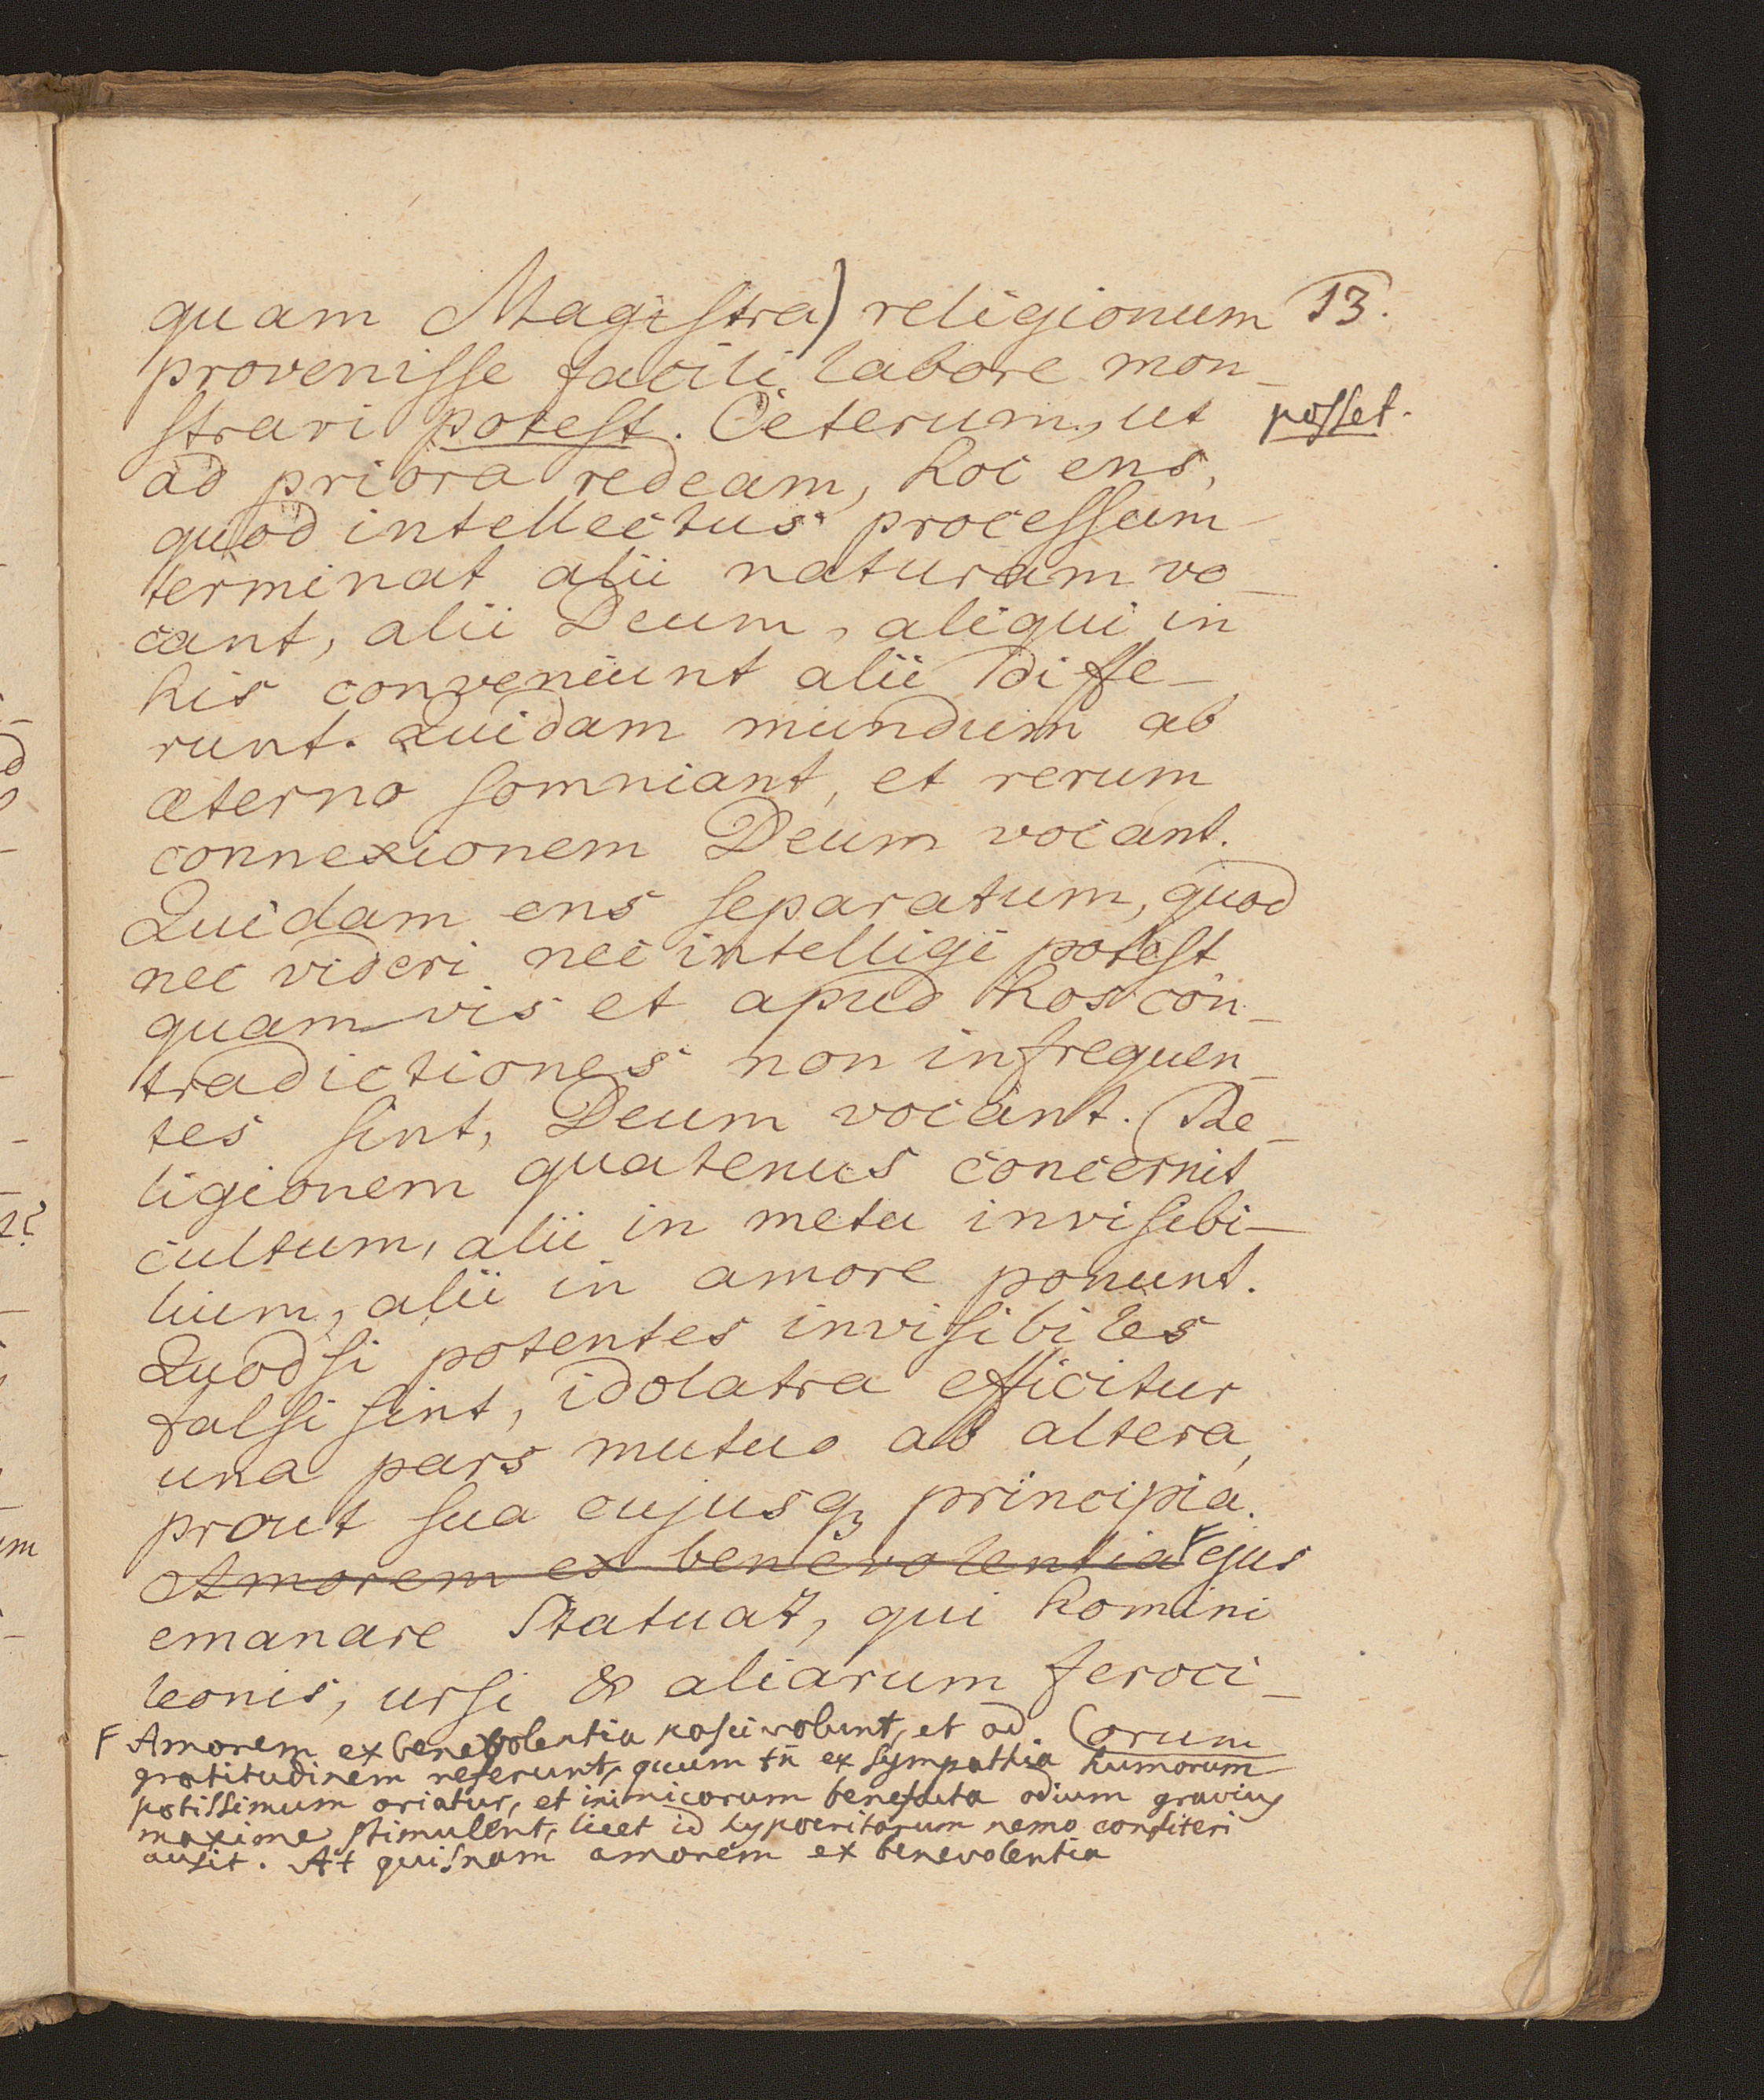 quam Magistra) religionum 13.
provenisse facili labore mon_
strari potest. Ceterum, ut posset.
ad priora redeam, hoc ens,
quod intellectus processum
terminat alii naturam vo_
cant, alii Deum, aliqui in
his conveniunt alii diffe_
runt. Quidam mundum ab
æterno somniant, et rerum
connexionem Deum vocant.
Quidam ens separatum, quod
nec videri nec intelligi potest
quamvis et apud hos con_
tradictiones non infrequen_
tes sint, Deum vocant. Re_
ligionem quatenus concernit
cultum, alii in metu invisibi_
lium, alii in amore ponunt.
Quodsi potentes invisibiles
falsi sint, idolatra efficitur
una pars mutuo ab altera,
prout sua cujusq principia.
Amorem ex benevolentia F ejus
emanare statuat, qui homini
leonis, ursi & aliarum feroci_
F Amorem ex benevolentia nasci volunt, et ad eorum
gratitudinem referunt, quum tn ex sympathia humorum
potissimum oriatur, et inimicorum benefacta odium gravius
maxime stimulent, licet id hypocritarum nemo confiteri
ausit. At quisnam amorem ex benevolentia